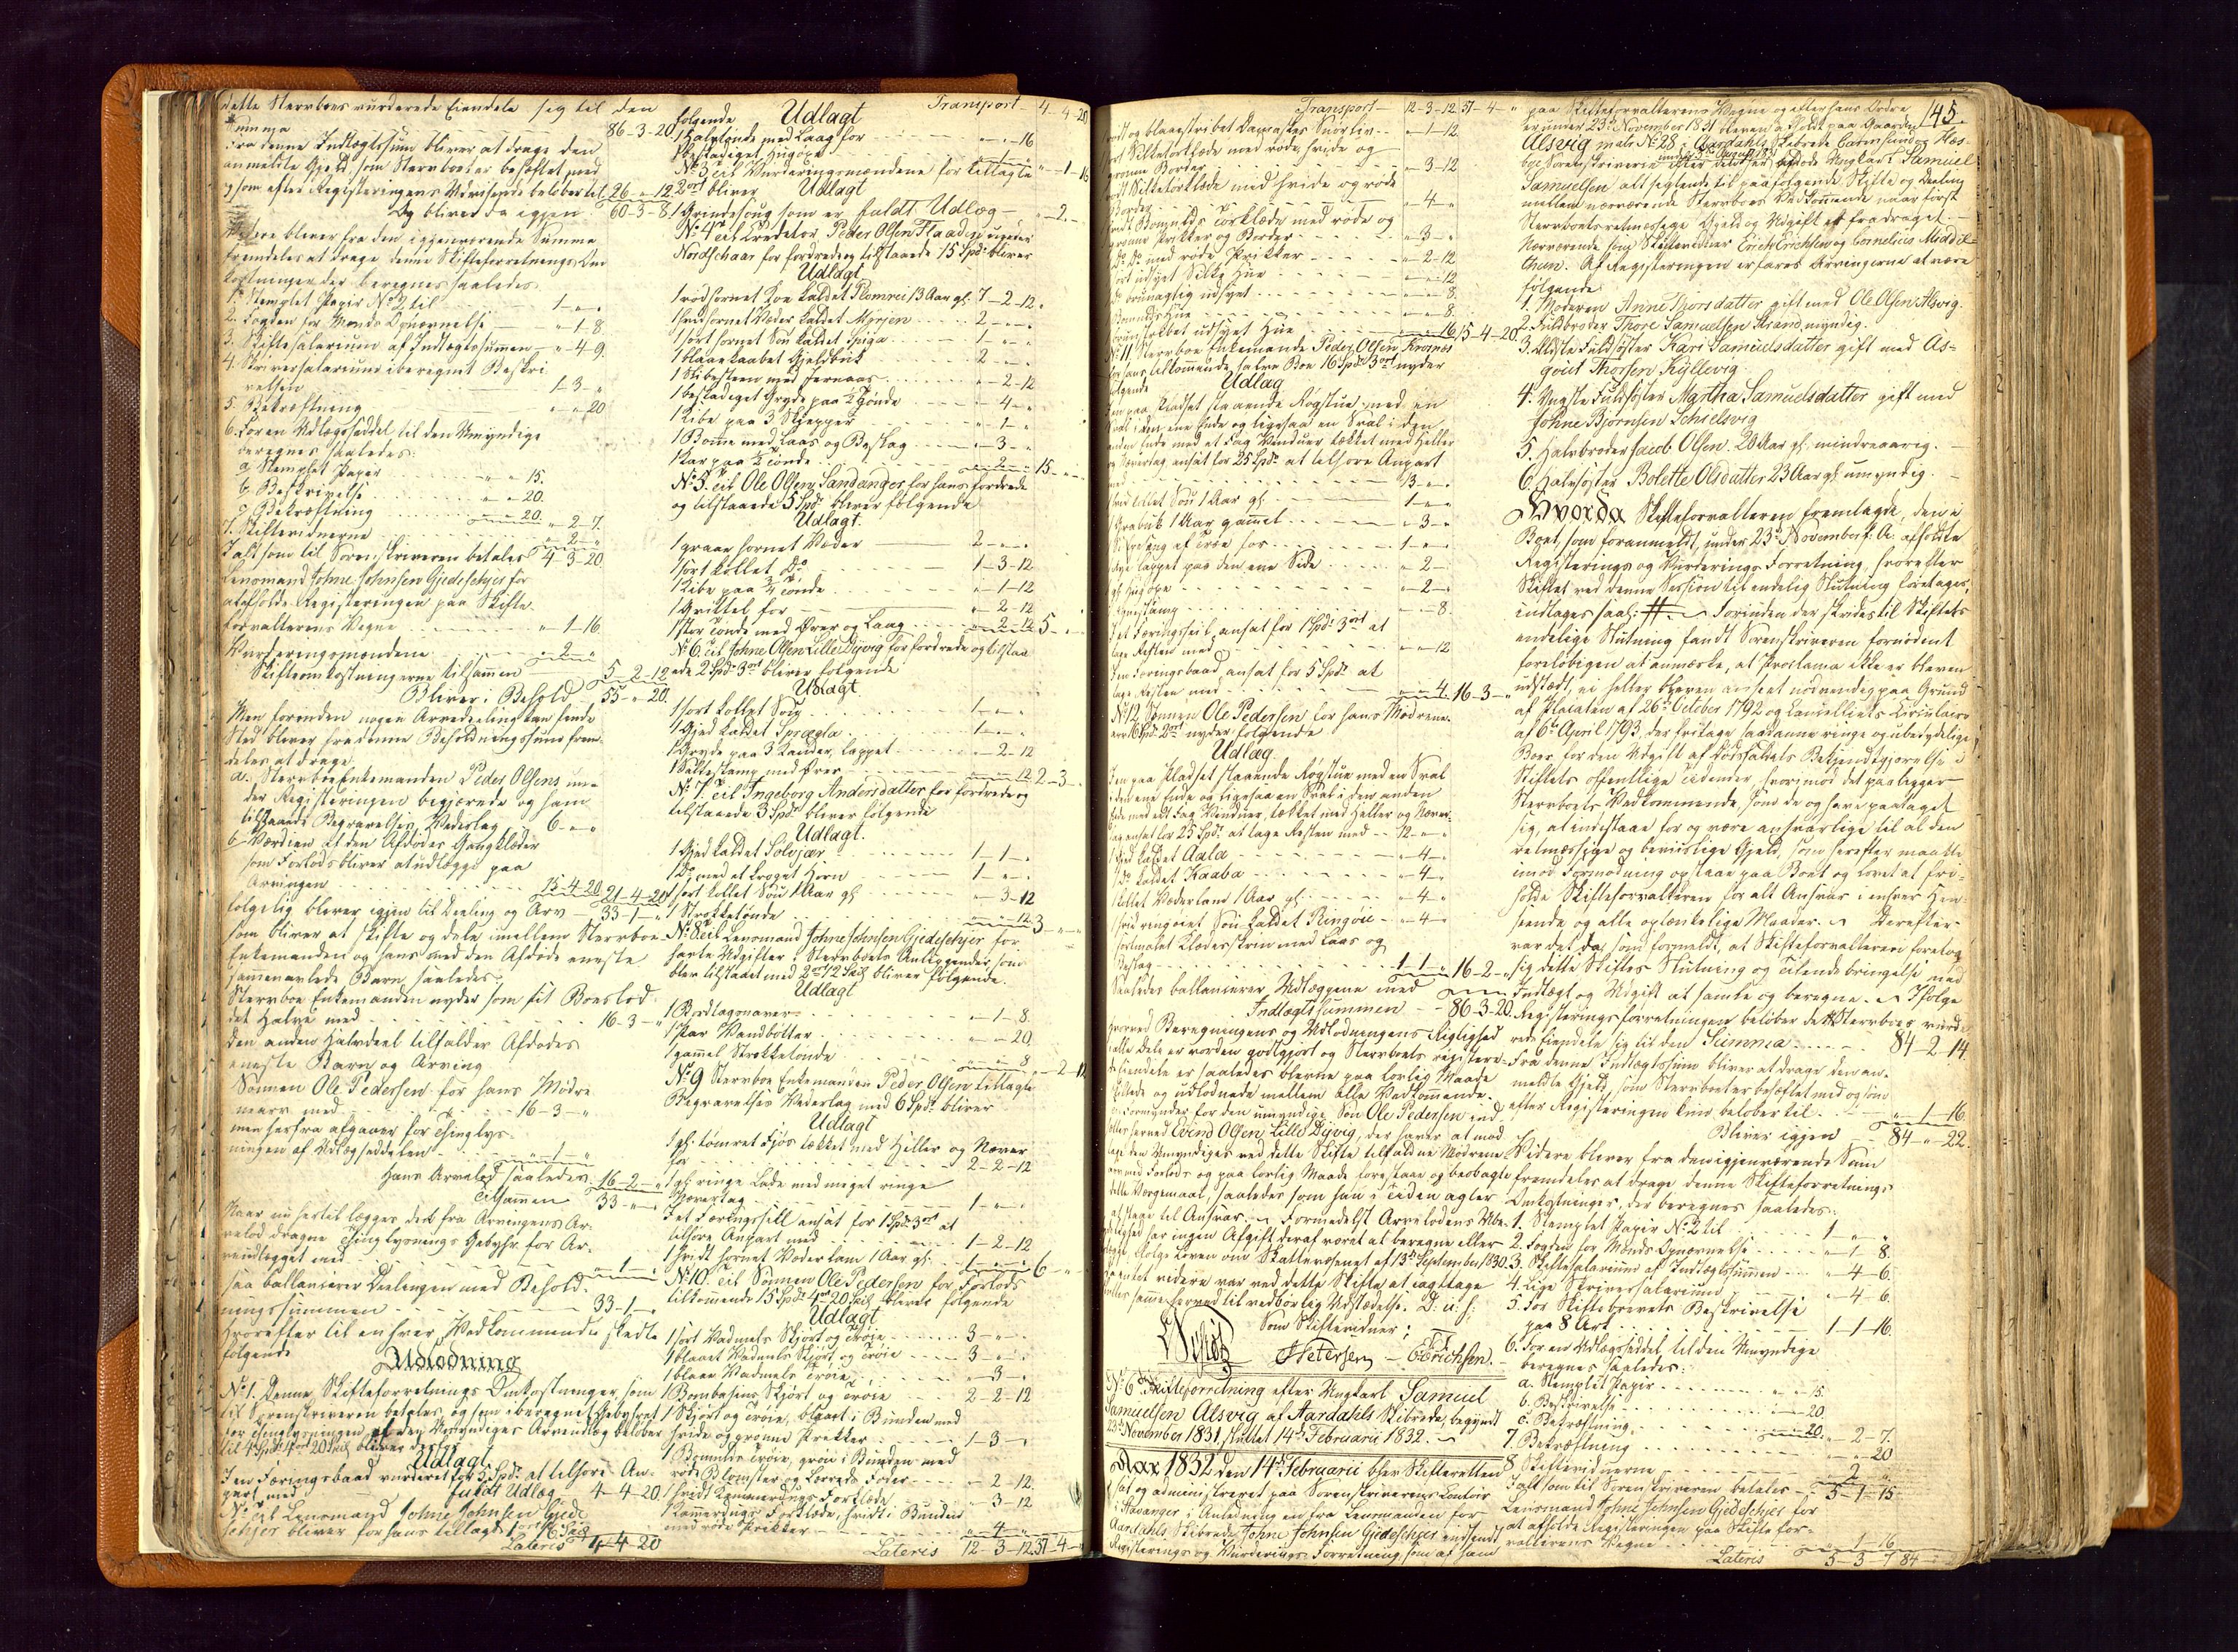 dette Sterrboes vurderede Eiendele sig til den
Summa 86-3-20
Fra denne Indtægtssum bliver at drage den
anmeldte Gjeld, som Sterrboet er behæftet med
og som efter Registeringens Udvisende beløber til 26-"-12
Og bliver da igjen 60-3-8
Videre bliver fra den igjenværende Summa
fremdeles at drage denne Skifteforretnings Om-
kostninger der beregnes saaledes:
1. Stemplet Papir No 2 til 1-"-"
2. Fogden for Mænds Opnævnelse "-1-8
3. Skiftesalarium af Indtægtssummen "-4-9
4. Skriversalarium iberegnet Beskri-
velsen 1-3-"
5. Bekræftning "-"-20
6. For en Udlægsseddel til den Umyndige
beregnes saaledes:
a. Stemplet Papir "-"-15
b. Beskrivelse "-"-20
c. Bekræftning "-"-20 "-2-7
7. Skiftevidnerne "-2-"
Ialt som til Sorenskriveren betales 4-3-20
Lensmand Johne Johnsen Gjedeschjer for
at afholde Registeringen paa Skifte-
forvalterens Vegne "-1-16
Vurderingsmændene "-2-"
Skifteomkostningerne tilsammen 5-2-12
Bliver i Behold 55-"-20
Men forinden nogen Arvedeeling kan finde
Sted bliver fra denne Beholdningssum frem-
deles at drage
a. Sterrboe Enkemanden Peder Olsens un-
der Registeringen begjærede og ham
tilstaaede Begravelses Vederlag 6-"-"
b. Værdien af den Afdødes Gangklæder
som Forlods bliver at udlægge paa
Arvingen 15-4-20 21-4-20
følgelig bliver igjen til Deeling og Arv 33-1-"
som bliver at skifte og dele imellem Sterrboe-
Enkemanden og hans med den Afdøde eneste
sammenavlede Barn saaledes:
Sterrboe Enkemanden nyder som sit Boeslod
det Halve med 16-3-"
den anden Halvdeel tilfalder Afdødes
eneste Barn og Arving
Sønnen Ole Pedersen for hans Mødre-
nearv med 16-3-"
men herfra afgaaer for Thinglys-
ningen af Udlægsseddelen "-1-"
Hans Arvelod saaledes 16-2-"
Tilsammen 33-"-"
Naar nu hertil lægges det fra Arvingens Ar-
velod dragne Thinglysnings Gebyhr for Ar-
veudlægget med "-1-"
saa ballancerer Deelingen med Behold-
ningssummen 33-1-"
Hvorefter til enhver Vedkommende skedte
følgende
Udlodning
No 1. Denne Skifteforretnings Omkostninger, som
til Sorenskriveren betales, og som iberegnet Gebyhret
for Thinglysningen af den Umyndiges Arveudlæg beløber
til 4 Spd 4 ort 20 Skil bliver der
Udlagt
I en Færingsbaad vurderet for 5 Spd at tilføre An-
part med fuldt Udlæg 4-4-20
No 2 til Lensmand Johne Johnsen Gjede-
schjer bliver for hans tillagte 1 ort 16 Skil
Lateris 4-4-20
Transport 4-4-20
følgende Udlagt
1 Halvtønde med Laag for "-"-16
1 beskadiget Hugøxe
No 3 til Vurderingsmændene for tillagte "-1-16
2 ort bliver Udlagt
1 Grindesoug som er fuldt Udlæg "-2-"
No 4 til Creditor Peder Olsen Flaadje under
Nordschaar for fordrede og tilstaaede 15 Spd bliver
Udlagt
1 rødhornet Koe kaldet Plomrei 13 Aar gl. 7-2-12
1 hvidhornet Væder kaldet Morjen 2-"-"
1 sort hornet Sou kaldet Spiga 1-"-"
1 blaaekaabet Gjeldbuk 2-"-"
1 Slibesteen med Jernaas "-2-12
1 beskadiget Gryde paa ½ Tønde "-4-"
1 Kibe paa 3 Skjepper "-1-"
1 Bomme med Laas og Beslag "-3-"
1 Kar paa ½ Tønde 15-"-"
No 5 til Ole Olsen Sandanger for hans fordrede
og tilstaaede 5 Spd bliver følgende
Udlagt
1 graae hornet Væder 2-"-"
1 sort kollet Do 1-3-12
1 Kibe paa ¾ Tønde "-1-12
1 Grittel for "-2-12
1 stor Tønde med Ører og Laag "-2-12 5-"-"
No 6 til Johne Olsen Lille Dyvig for fordrede og tilstaa-
ede 2 Spd 3 ort bliver følgende
Udlagt
1 sort kollet Soug 1-"-"
1 Gjed kaldet Sprægla 1-"-"
1 Gryde paa 3 Kander, lappet "-2-12
1 Saltestamp med Ører "-"-12 2-3-"
No 7. til Ingeborg Andersdatter for fordrede og
tilstaaede 3 Spd bliver følgende
Udlagt
1 Gjed kaldet Solvjær 1-1-"
1 Do med et kroget Horn 1-"-"
1 sort kollet Sou 1 Aar gl. "-3-12
1 Strokketønde "-"-12 3-"-"
No 8 til Lensmand Johne Johnsen Gjedeschjer for
havte Udgifter i Sterrboets Anliggender som
blev tilstaaet med 2 ort 12 Skil bliver følgende
Udlagt
1 Bordlagsnaver "-1-8
1 Par Vandbøtter "-"-20
1 gammel Strokketønde "-"-8 "-2-12
No 9 Sterrboe Enkemanden Peder Olsen tillagte
Begravelses Vederlag med 6 Spd bliver
Udlagt
1 gl. tømret Fjøs tækket med Heller og Næver
for 2-2-12
1 gl. ringe Lade med meget ringe
Nævertag 1-"-"
I et Færingsseil ansat for 1 Spd 3 ort at
tilføre Anpart med 1-2-12
1 hvidt hornet Væderlam 1 Aar gl. 1-"-" 6-"-"
No 10. til Sønnen Ole Pedersen for Forlods
tilkommende 15 Spd 4 ort 20 Skil bliver følgende
Udlagt
1 sort Vadmels Skjørt og Trøie 3-"-"
1 blaaet Vadmels Skjørt og Trøie 3-"-"
1 blaae Vadmels Trøie "-3-"
1 Bombasins Skjørt og Trøie 2-2-12
1 Skjørt og Trøie, blaaet i Bunden med
hvide og grønne Prikker 1-3-"
1 Bomulds Trøie, grøn i Bunden med
røde Blomster og Lærreds Foder "-2-12
1 hvidt Kammerdugs Forklæde "-3-12
1 Kammerdugs Forklæde, hvidt i Bunden
med røde Prikker "-4-"
Lateris 12-3-12 37-4-"
Transport 12-3-12 37-4-"
rødt og blaaestribet Damaskes Snørliv "-1-12
sort Silketørklæde med røde, hvide og
grønne Border "-3-12
rødt Silketørklæde med hvide og røde
Border "-4-"
rødt Bomulds Tørklæde med røde og
grønne Prikker og Border "-3-"
Do Do med røde Prikker "-2-12
sort udsyet Silke Hue "-"-12
Do brunagtig udsyet "-"-8
Mands Hue "-"-8
brunstribet udsyet Hue "-"-16 15-4-20
No 11 Sterrboe Enkemande Peder Olsen Krosnes
for hans tilkommende halve Boe 16 Spd 3 ort nyder
følgende Udlæg
I en paa Pladset staaende Røgstue med en
Sval i den ene Ende og ligesaa en Sval i den
anden Ende med et Fag Vinduer tækket med Heller
og Nævertag ansat for 25 Spd at tilføre Anpart
med 13-"-"
hvid kollet Sou 1 Aar gl. 1-"-"
1 Graabuk 1 Aar gammel "-3-"
1 "-"
lappet paa den ene Side "-2-"
gl. Hugøxe "-2-"
"-"-8
I et Færingsseil ansat for 1 Spd 3 ort at
tage Resten med "-"-12
I en Færingsbaad ansat for 5 Spd at
tage Resten med "-"-4 16-3-"
No 12 Sønnen Ole Pedersen for hans Mødrene-
arv 16 Spd 2 ort nyder følgende
Udlæg
I en paa Pladset staaende Røgstue med en Sval
i den ene Ende og ligesaa en Sval i den anden
Ende med et Fag Vinduer, tækket med Heller og Næver-
tag ansat for 25 Spd at tage Resten med 12-"-"
Gjed kaldet Aala "-4-"
Do kaldet Kaaba "-4-"
kollet Væderlam 1 Aar gl. "-4-"
hvid ringøiet Sou kaldet Ringøie "-4-"
sortmalet Klædeskrin med Laas og
Beslag 1-1-" 16-2-"
Saaledes ballancerer Udlæggene med
Indtægtssummen 86-3-20
Hvorved Beregningens og Udlodningens Rigtighed
i alle Dele er vorden godtgjort og Sterrboets registere-
de Eiendele er saaledes blevne paa lovlig Maade
skiftede og udlodnede mellem alle Vedkommende.
Til Formynder for den umyndige Søn Ole Pedersen ind-
sættes herved Evind Olsen Lille Dyvig, der haver at mod-
tage den Umyndiges ved dette Skifte tilfaldne Mødrene-
arv med Forlods og paa lovlig Maade forestaae og beobagte
dette Værgemaal, saaledes som han i Tiden agter
at staae til Ansvar. Formedelst Arvelodens Ube-
tydelighed har ingen Afgift deraf været at beregne eller
erlægge, ifølge Loven om Skattevæsenet af 13de September 1830.
Da intet videre var ved dette Skifte at iagttage
sluttes samme herved til vedbørlig Udstædelse. D: u: s:
Som Skiftevidner:
JPetersen - EErichsen.
No 6 Skifteforretning efter Ungkarl Samuel
Samuelsen Alsvig af Aardahls Skibrede, begyndt
23de November 1831, sluttet 14de Februarii 1832.
Aar 1832 den 14de Februarii blev Skifteretten
sat og administreret paa Sorenskriverens Contoir
i Stavanger i Anledning en fra Lensmanden for
Aardahls Skibrede, Johne Johnsen Gjedeschjer indsendt
Registerings og Vurderings Forretning, som af ham
145.
paa Skifteforvalterens Vegne og efter hans Ordre
er under 23de November 1831 bleven afholdt paa Gaarden
Alsvig matr. No 28 i Aardahls Skibrede Carmsund og Hes-
bye Sorenskriverie efter den ved Døden afgangne Ungkarl Samuel
Samuelsen alt sigtende til paafølgende Skifte og Deeling
mellem nærværende Sterrboes Vedkommende naar først
Sterrboets retmæssige Gjeld og Udgift er fradraget.
Nærværende som Skiftevidner Erich Erichsen og Cornelius Middel-
thun. Af Registeringen erfares Arvingerne at være
følgende
1. Moderen Anne Thorsdatter gift med Ole Olsen Alsvig.
2. Fuldbroder Thore Samuelsen Strand myndig.
3. Ældste Fuldsøster Kari Samuelsdatter gift med As-
gout Thorsen Kyllevig
4. Yngste Fuldsøster Martha Samuelsdatter gift med
Johne Bjørnsen Schielsvig
5. Halvbroder Jacob Olsen. 20 Aar gl. mindreaarig.
6. Halvsøster Bolette Olsdatter 23 Aar gl. umyndig.
Hvorda Skifteforvalteren fremlagde, den i
Boet, som foranmeldt, under 23de November f: A: afholdte
Registerings og Vurderings Forretning, hvorefter
Skiftet ved denne Session til endelig Slutning foretages,
indtages saal: #. Forinden der skrides til Skiftets
endelige Slutning fandt Sorenskriveren fornødent
foreløbigen at anmærke, at Proclama ikke er bleven
udstædt, ei heller bleven anseet nødvendig paa Grund
af Placaten af 26de October 1792 og Cancelliets Circulaire
af 6te April 1793, der fritage saadanne ringe og ubetydelige
Boer for den Udgift af Dødsfaldets Bekjendtgjørelse i
Stiftets offentlige Tidender, hvorimod det paaligger
Sterrboets Vedkommende, som de og have paataget
sig, at indestaae for og være ansvarlige til al den
retmæssige og beviislige Gjeld, som herefter maatte
imod Formodning opstaae paa Boet og lovet at fri-
holde Skifteforvalteren for alt Ansvar i enhver Hen-
seende og alle optænkelige Maader. Derefter
var det da, som formeldt, at Skifteforvalteren foretog
sig dette Skiftes Slutning og Tilendebringelse med
Indtægt og Udgift at samle og beregne. Ifølge
Registeringsforretningen beløber dette Sterrboes vurde-
rede Eiendele sig til den Summa 84-2-14
Fra denne Indtægtssum bliver at drage den an-
meldte Gjeld, som Sterrboet er behæftet med og som
efter Registeringen kun beløber til "-1-16
Bliver igjen 84-"-22
Videre bliver fra den igjenværende Sum
fremdeles at drage denne Skifteforretnings
Omkostninger, der beregnes saaledes:
1. Stemplet Papir No 2 til 1-"-"
2. Fogden for Mænds Opnævnelse "-1-8
3. Skiftesalarium af Indtægtssummen "-4-6
4. Lige Skriversalarium "-4-6
5. For Skiftebrevets Beskrivelse
paa 8 Ark 1-1-16
6. For en Udlægsseddel til den Umyndige
beregnes saaledes:
a. Stemplet Papir "-"-15
b. Beskrivelse "-"-20
c. Bekræftning "-"-20 "-2-7
7. Bekræftning "-"-20
8. Skiftevidnerne "-2-"
Ialt som til Sorenskriveren betales 5-1-15
Lensmand Johne Johnsen Gjedeschjer for
at afholde Registeringen paa Skiftefor-
valterens Vegne "-1-16
Lateris 5-3-7 84